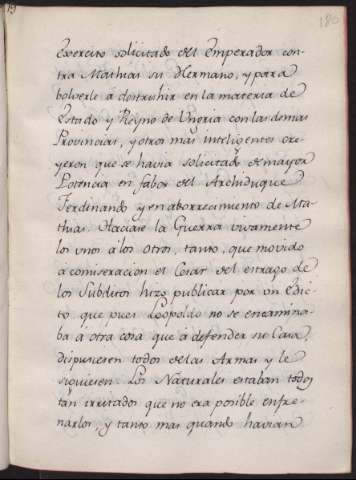 180
Exercito solicitado del Emperador con-
tra Mathias su Hermano, y para
bolverle á destruhir en la materia de
Estado y Reyno de Vngria con las demas
Provincias, y otros mas inteligentes cre-
yeron que se havia solicitado de mayor
Potencia en fabor del Archiduque
Ferdinando y en aborrecimiento de Ma-
thias. Haciase la Guerra vivamente
los unos á los otros, tanto, que movido
a comiseracion el Cesar del estrago de
los Subditos hizo publicar por un Edic-
to que pues Leopoldo no se encamina-
ba á otra cosa que á defender su Casa,
dispusiesen todos de las Armas y le
siguiesen. Los Naturales estaban todos
tan irritados que no era posible enfre-
narlos, y tanto mas quando havian